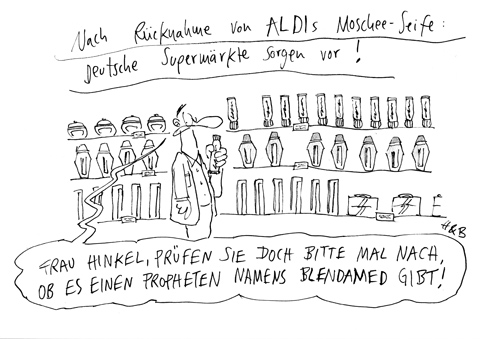 Nach Rücknahme von ALDIs Moschee-Seife:
Deutsche Supermärkte sorgen vor!
H&B
FRAU HINKEL, PRÜFEN SIE DOCH BITTE MAL NACH,
OB ES EINEN PROPHETEN NAMENS BLENDAMED GIBT!